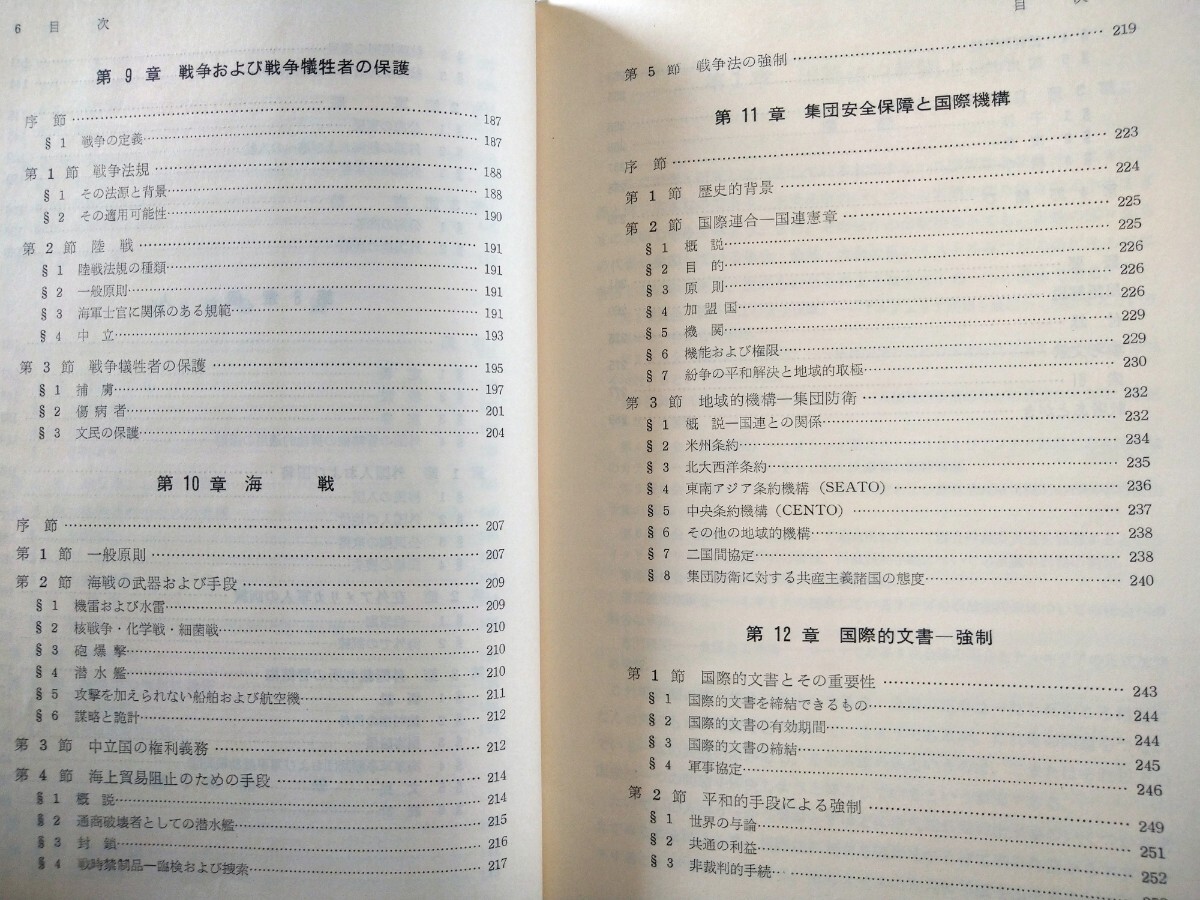 6 目 次
第 9 章 戦争および戦争犠牲者の保護
序 節…187
§ 1 戦争の定義…187
第 1 節 戦争法規…188
§ 1 その法源と背景…188
§ 2 その適用可能性…190
第 2 節 陸 戦…191
§ 1 陸戦法規の種類…191
§ 2 一般原則…191
§ 3 海軍士官に関係のある規範…191
§ 4 中 立…193
第 3 節 戦争犠牲者の保護…195
§ 1 捕 虜…197
§ 2 傷 病 者…201
§ 3 文民の保護…204
第 10 章 海 戦
序 節…207
第 1 節 一般原則…207
第 2 節 海戦の武器および手段…209
§ 1 機雷および水雷…209
§ 2 核戦争・化学戦・細菌戦…210
§ 3 砲 爆 撃…210
§ 4 潜 水 艦…210
§ 5 攻撃を加えられない船舶および航空機…211
§ 6 謀略と詭計…212
第 3 節 中立国の権利義務…212
第 4 節 海上貿易阻止のための手段…214
§ 1 概 説…214
§ 2 通商破壊者としての潜水艦…215
§ 3 封 鎖…216
§ 4 戦時禁制品―臨検および捜索…217
目 次
第 5 節 戦争法の強制…219
第 11 章 集団安全保障と国際機構
序 節…223
第 1 節 歴史的背景…224
第 2 節 国際連合―国連憲章…225
§ 1 概 説…225
§ 2 目 的…226
§ 3 原 則…226
§ 4 加 盟 国…226
§ 5 機 関…229
§ 6 機能および権限…229
§ 7 紛争の平和解決と地域的取極…230
第 3 節 地域的機構―集団防衛…232
§ 1 概 説―国連との関係…232
§ 2 米州条約…234
§ 3 北大西洋条約…235
§ 4 東南アジア条約機構（SEATO）…236
§ 5 中央条約機構（CENTO）…237
§ 6 その他の地域的機構…238
§ 7 二国間協定…238
§ 8 集団防衛に対する共産主義諸国の態度…240
第 12 章 国際的文書―強制
第 1 節 国際的文書とその重要性…243
§ 1 国際的文書を締結できるもの…244
§ 2 国際的文書の有効期間…244
§ 3 国際的文書の締結…245
§ 4 軍事協定…246
第 2 節 平和的手段による強制…249
§ 1 世界の与論…251
§ 2 共通の利益…252
§ 3 非裁判的手続…